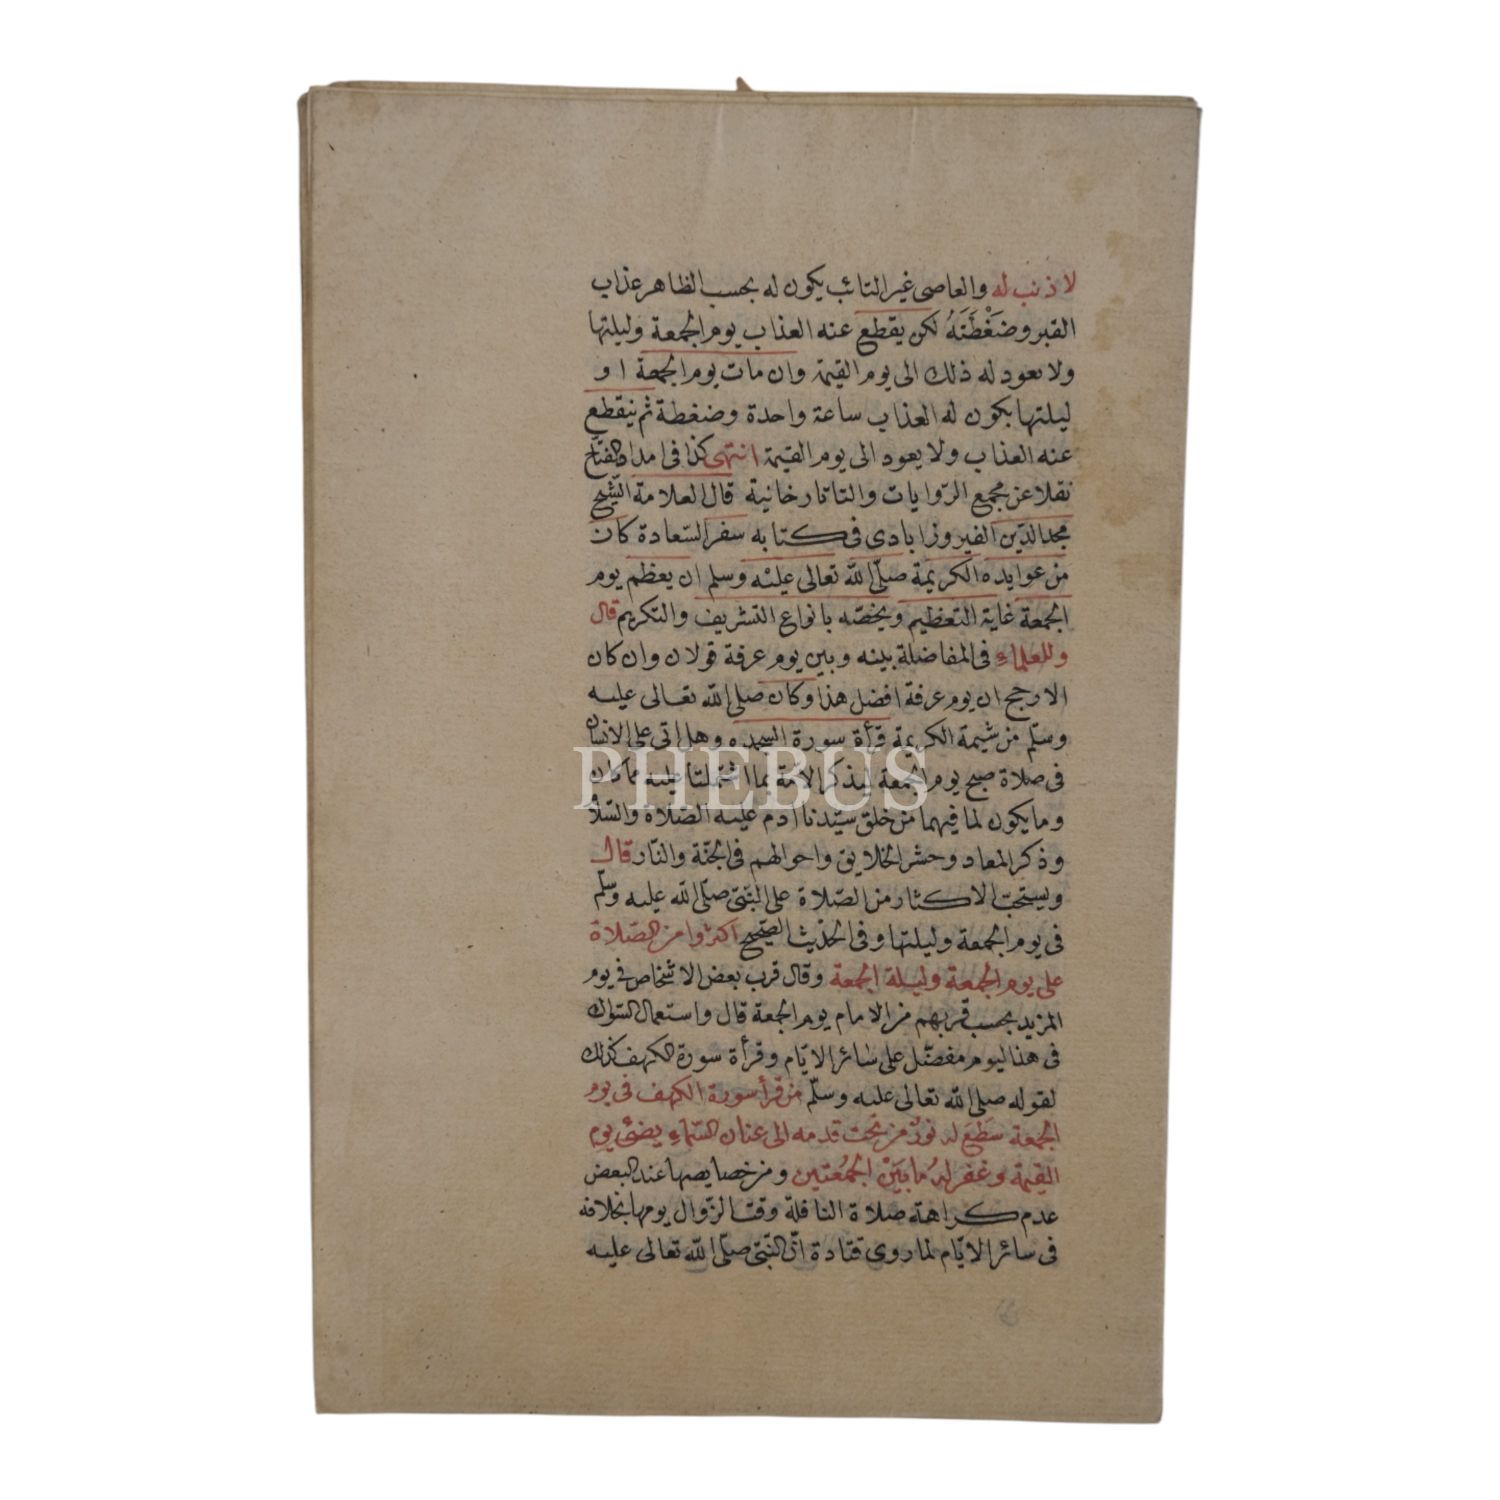 لا ذنب له والعاصى غير التائب يكون له بحسب الظاهر عذاب
القبر وضَغْطَتَهُ لكن يقطع عنه العذاب يوم الجمعة وليلتها
ولا يعود له ذلك الى يوم القيمة وان مات يوم الجمعة او
ليلتها يكون له العذاب ساعة واحدة وضغطة ثم ينقطع
عنه العذاب ولا يعود الى يوم القيمة انتهى كذا فى امداد الفتاح
نقلا عن مجمع الروايات والتاتارخانية قال العلامة الشيخ
مجد الدين الفيروزابادى فى كتابه سفر السعادة كان
من عوايده الكريمة صلّى الله تعالى عليه وسلم ان يعظم يوم
الجمعة غاية التعظيم ويخصّه بانواع التشريف والتكريم قال
وللعلماء فى المفاضلة بينه وبين يوم عرفة قولان وان كان
الارجح ان يوم عرفة افضل هذا وكان صلى الله تعالى عليه
وسلّم من شيمة الكريمة قرأة سورة السجده وهل اتى على الانسان
فى صلاة صبح يوم الجمعة ليذكر الامة بما اشتملتا عليه مما كان
وما يكون لما فيهما من خلق سيّدنا ادم عليه الصّلاة والسّلام
وذكر المعاد وحشر الخلايق واحوالهم فى الجنّة والنّار قال
ويستحبّ الاكثار من الصّلاة على النّبّى صلّى الله عليه وسلّم
فى يوم الجمعة وليلتها وفى الحديث الصّحيح اكثروا من الصّلاة
على يوم الجمعة وليلة الجمعة وقال قرب بعض الاشخاص فى يوم
المزيد بحسب قربهم من الامام يوم الجمعة قال واستعمال السّواك
فى هذا اليوم مفضّل على سائر الايّام وقرأة سورة الكهف كذلك
لقوله صلى الله تعالى عليه وسلّم من قرأ سورة الكهف فى يوم
الجمعة سَطَعَ له نورٌ من تحت قدمه الى عنان السّماء يضئ يوم
القيمة وغفر لهُ ما بَيْنَ الجمُعتين ومن خصايصها عند البعض
عدم كراهة صلاة النافلة وقت الزّوال يومها بخلافه
فى سائر الايّام لما روى قتادة انّ النّبّى صلّى الله تعالى عليه
PHEBUS